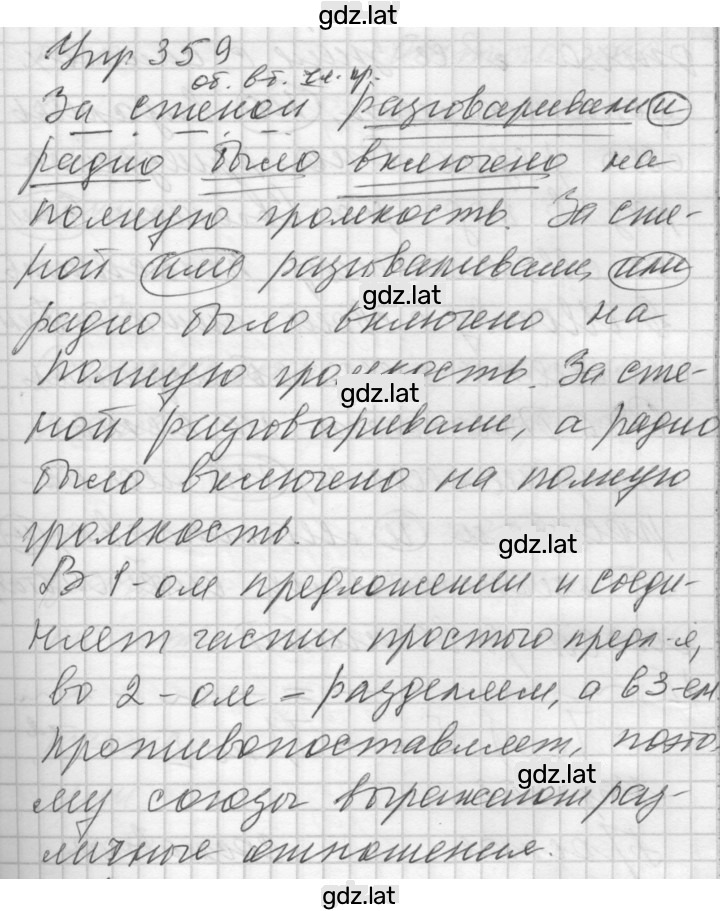 gdz.lat
Упр 359
об. вт. чл. п.
За стеной разговаривали и
радио было включено на
полную громкость. За сте-
ной или разговаривали, или
gdz.lat
радио было включено на
полную громкость. За сте-
gdz.lat
ной разговаривали, а радио
было включено на полную
громкость.
gdz.lat
В 1-ом предложении и соеди-
няет части простого предл-я,
во 2-ом – разделяем, а в 3-ем
противопоставляет, поэто
gdz.lat
му союзы выражают раз-
личные отношения.
gdz.lat